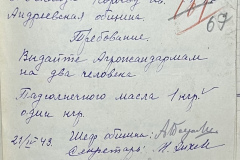 Андреевская община.
Требование.
Выдайте Агрожандармам
на два человека
Подсолнечного масла 1 кгр.
один кгр.
21/IV 43. Шеф общины:
Секретарь:
67